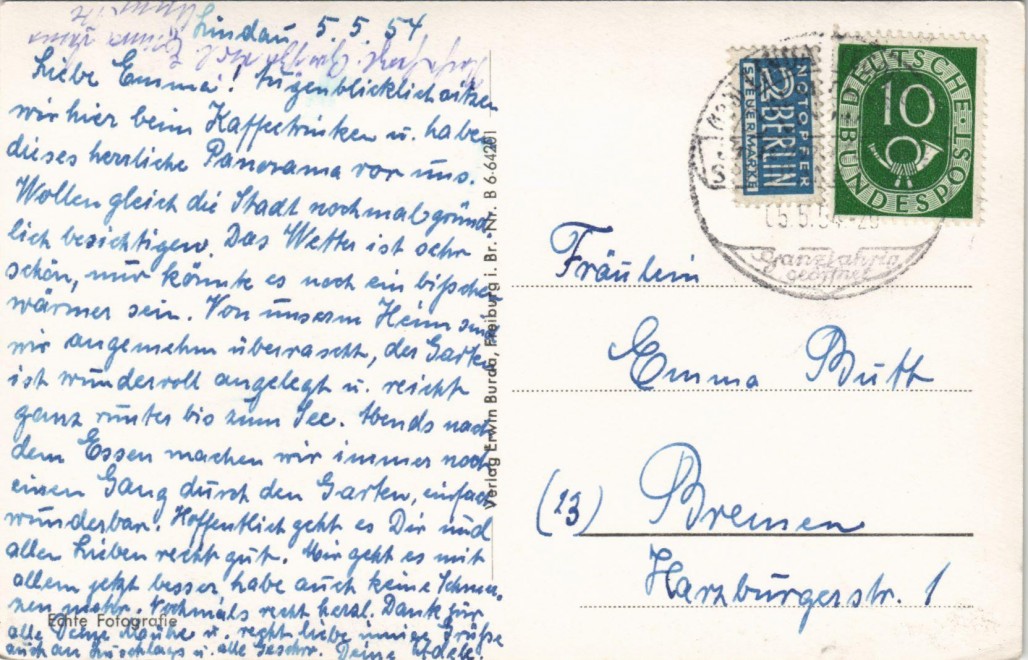 Lindau, 5.5.54.
Liebe Emma! Augenblicklich sitzen
wir hier beim Kaffeetrinken u. haben
dieses herrliche Panorama vor uns.
Wollen gleich die Stadt nochmal gründ-
lich besichtigen. Das Wetter ist sehr
schön, nur könnte es noch ein bißchen
wärmer sein. Von unserm Heim sind
wir angenehm überrascht, der Garten
ist wundervoll angelegt u. reicht
ganz runter bis zum See. Abends nach
dem Essen machen wir immer noch
einen Gang durch den Garten, einfach
wunderbar. Hoffentlich geht es Dir und
allen Lieben recht gut. Mir geht es mit
allem jetzt besser, habe auch keine Schmer-
zen mehr. Nochmals recht herzl. Dank für
alle Deine Mühe u. recht liebe innige Grüße
auch an u. alle Geschw. Deine Adele.
Echte Fotografie
Verlag Erwin Burda, Freiburg i. Br. - Nr. B 6-6425
NOTOPFER
2 BERLIN
STEUERMARKE
DEUTSCHE
BUNDESPOST
10
5.5.54
Ganzjährig
geöffnet
Fräulein
Emma Butt
(23) Bremen
Harzburgerstr. 1